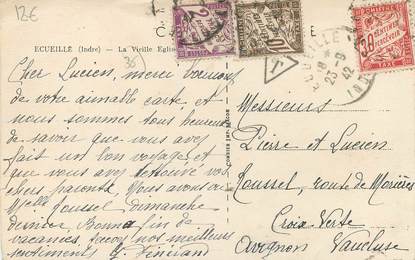 12€
ECUEILLÉ (Indre) — La Vieille Eglise
35
Cher Lucien, merci
de votre aimable carte et
nous sommes tous heureux
de savoir que vous avez
fait un bon voyage et
que vous avez retrouvé vos
chers parents. Nous avons vu
Mjelle Roussel dimanche
dernier. Bonne fin de
vacances, nos meilleurs
sentiments
Messieurs
Pierre et Lucien
Roussel, route de Morières
Croix Verte
Avignon Vaucluse
2
10
30
CENTIMES
À PERCEVOIR
TAXE
T
ECUEILLÉ
18 H
23 - 9
42
INDRE